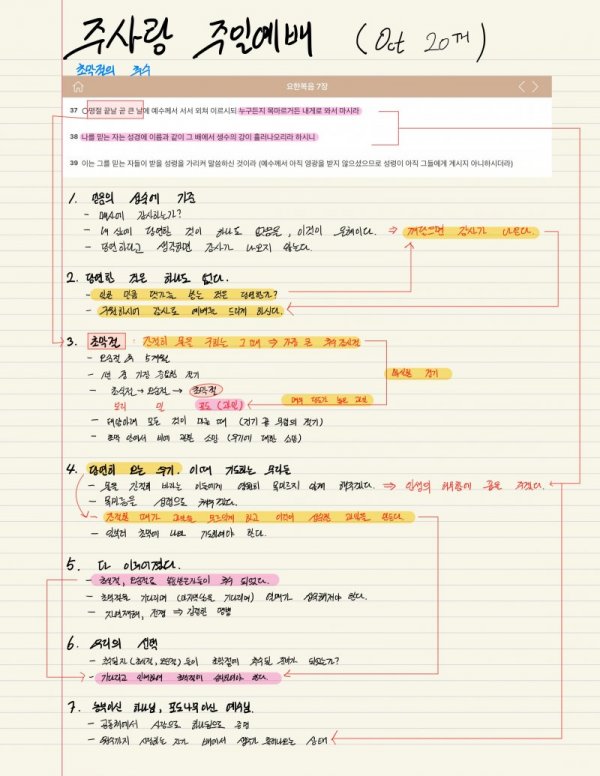 주사랑 주일예배 (Oct 20th)
초막절의 추수
요한복음 7장
37 ○명절 끝날 곧 큰 날에 예수께서 서서 외쳐 이르시되 누구든지 목마르거든 내게로 와서 마시라
38 나를 믿는 자는 성경에 이름과 같이 그 배에서 생수의 강이 흘러나오리라 하시니
39 이는 그를 믿는 자들이 받을 성령을 가리켜 말씀하신 것이라 (예수께서 아직 영광을 받지 않으셨으므로 성령이 아직 그들에게 계시지 아니하시더라)
1. 믿음의 성숙에 기준
- 매사에 감사하는가?
- 내 삶에 당연한 것이 하나도 없음을, 이것이 은혜이다. ⇒ 깨달으면 감사가 나온다.
- 당연하다고 생각하면 감사가 나오지 않는다.
2. 당연한 것은 하나도 없다.
- 일한 만큼 댓가를 받는 것은 당연한가?
- 구원하시어 감사로 예배를 드리게 하신다.
3. 초막절 : 간절히 물을 구하는 그 때 ⇒ 가장 큰 추수감사절
- 오순절 후 5개월
- 1년 중 가장 중요한 절기
- 초실절 → 오순절 → 초막절
보리 밀 포도 (과일)
- 대한 모든 것이 마른 때 (건기 끝 우절의 절기)
- 초막 안에서 비에 관한 소망 (우기에 대한 소망)
4. 당연히 오는 우기. 이때 기도하는 우리들
- 물을 간절히 바라는 이들에게 영원히 목마르지 않게 해주겠다. ⇒ 인생의 메마름에 물을 주겠다.
- 목마름을 성령으로 채우겠다.
- 간절한 때가 과일을 무르익게 하고 이것이 성숙한 과일을 만든다.
- 일부러 초막에 나와 기도해야 한다.
5. 다 이루어졌다.
- 초실절, 오순절로 부활 추수 되었다.
- 초막절을 기다리며 (마지막 날을 기다리며) 열매가 성숙해져야 한다.
- 자연재해, 전쟁 ⇒
6. 우리의 선택
- 추수될 자 (초실절, 오순절) 들이 초막절에 추수될 준비가 되었는가?
- 기다리고 인내하여 초막절에 되어야 한다.
7. 농부이신 하나님, 포도나무이신 예수님.
- 공동체에서 사랑으로 하나됨으로 증명
- 자가 배에서 생수가 흘러나오는 상태